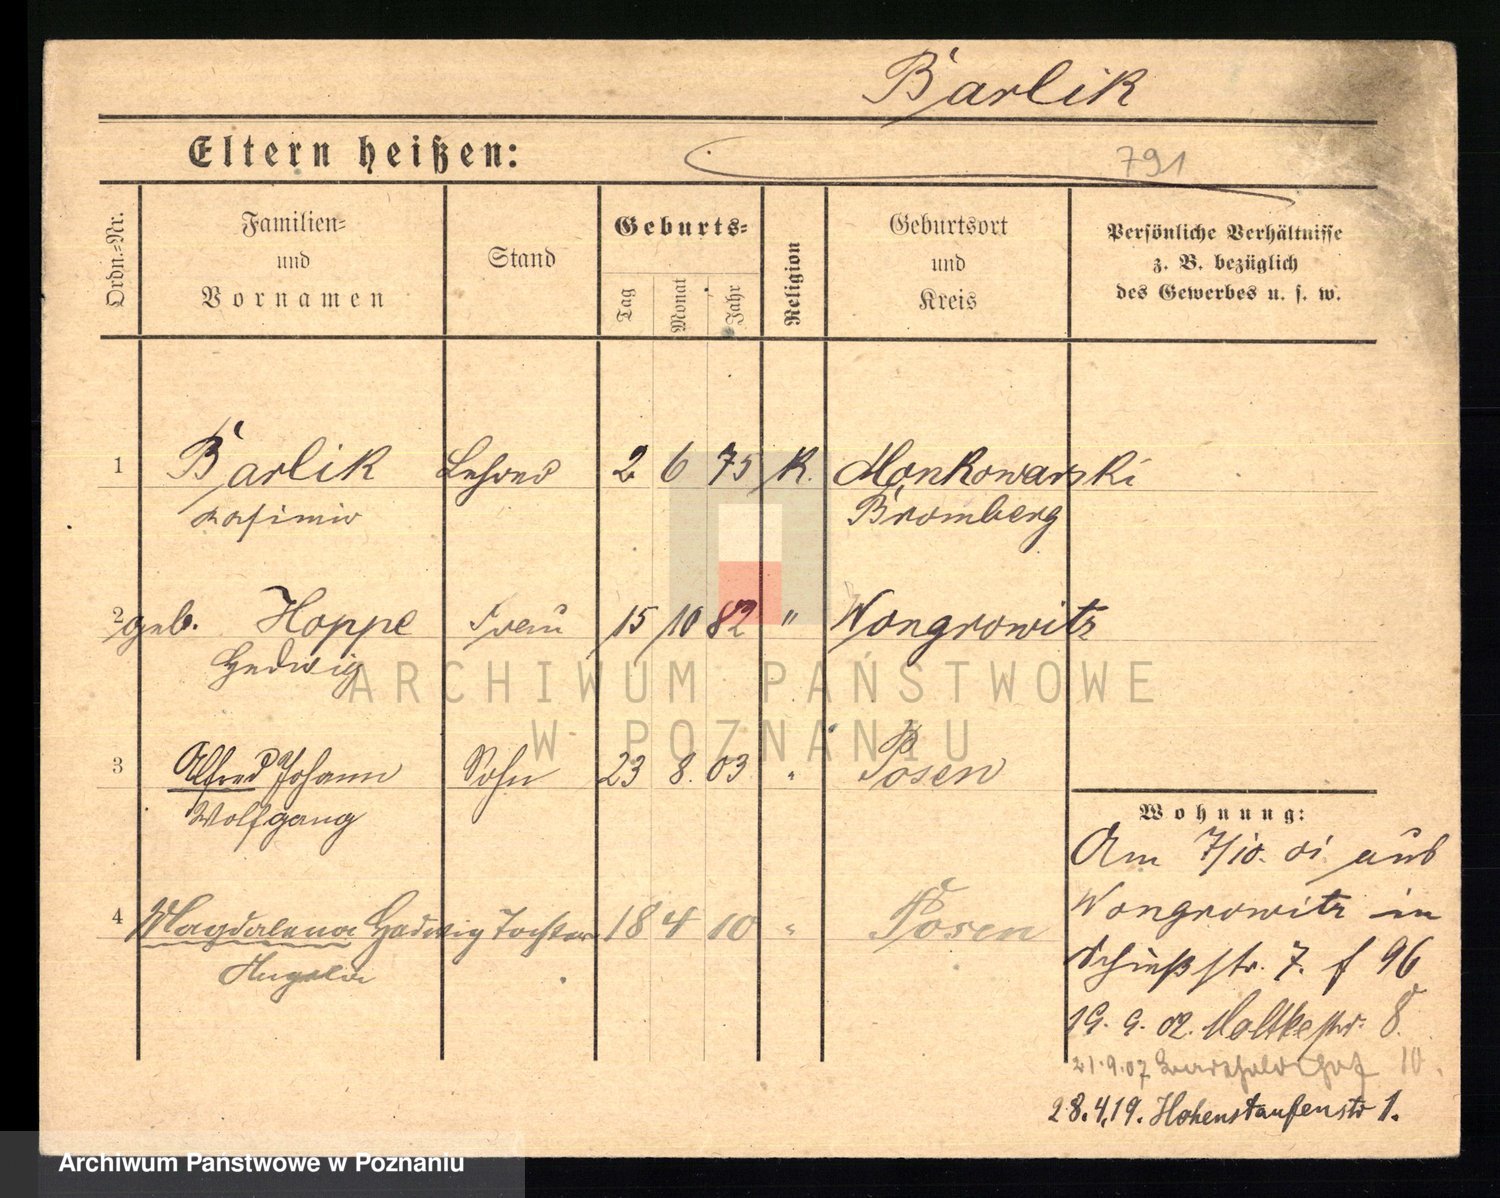 Barlik
Eltern heißen:
791
Ordn.-Nr.
Familien-
und
Vornamen
Stand
Geburts-
Tag
Monat
Jahr
Religion
Geburtsort
und
Kreis
Persönliche Verhältnisse
z. B. bezüglich
des Gewerbes u. s. w.
1 Barlik Lehrer 2 6 75 K. Monkowarski
Kasimir Bromberg
2 geb. Hoppe Frau 15 10 82 " Wongrowitz
Hedwig
3 Alfred Johann Sohn 23 8. 03 " Posen
Wolfgang
4 Magdalena Hedwig Tochter 18 4 10 " Posen
Wohnung:
Am 7/10. 01 aus
Wongrowitz in
Schießstr. 7. f 96
19. 9. 02. Moltkestr. 8.
21.9.07 10.
28.4.19. Hohenstaufenstr 1.
ARCHIWUM PAŃSTWOWE
W POZNANIU
Archiwum Państwowe w Poznaniu